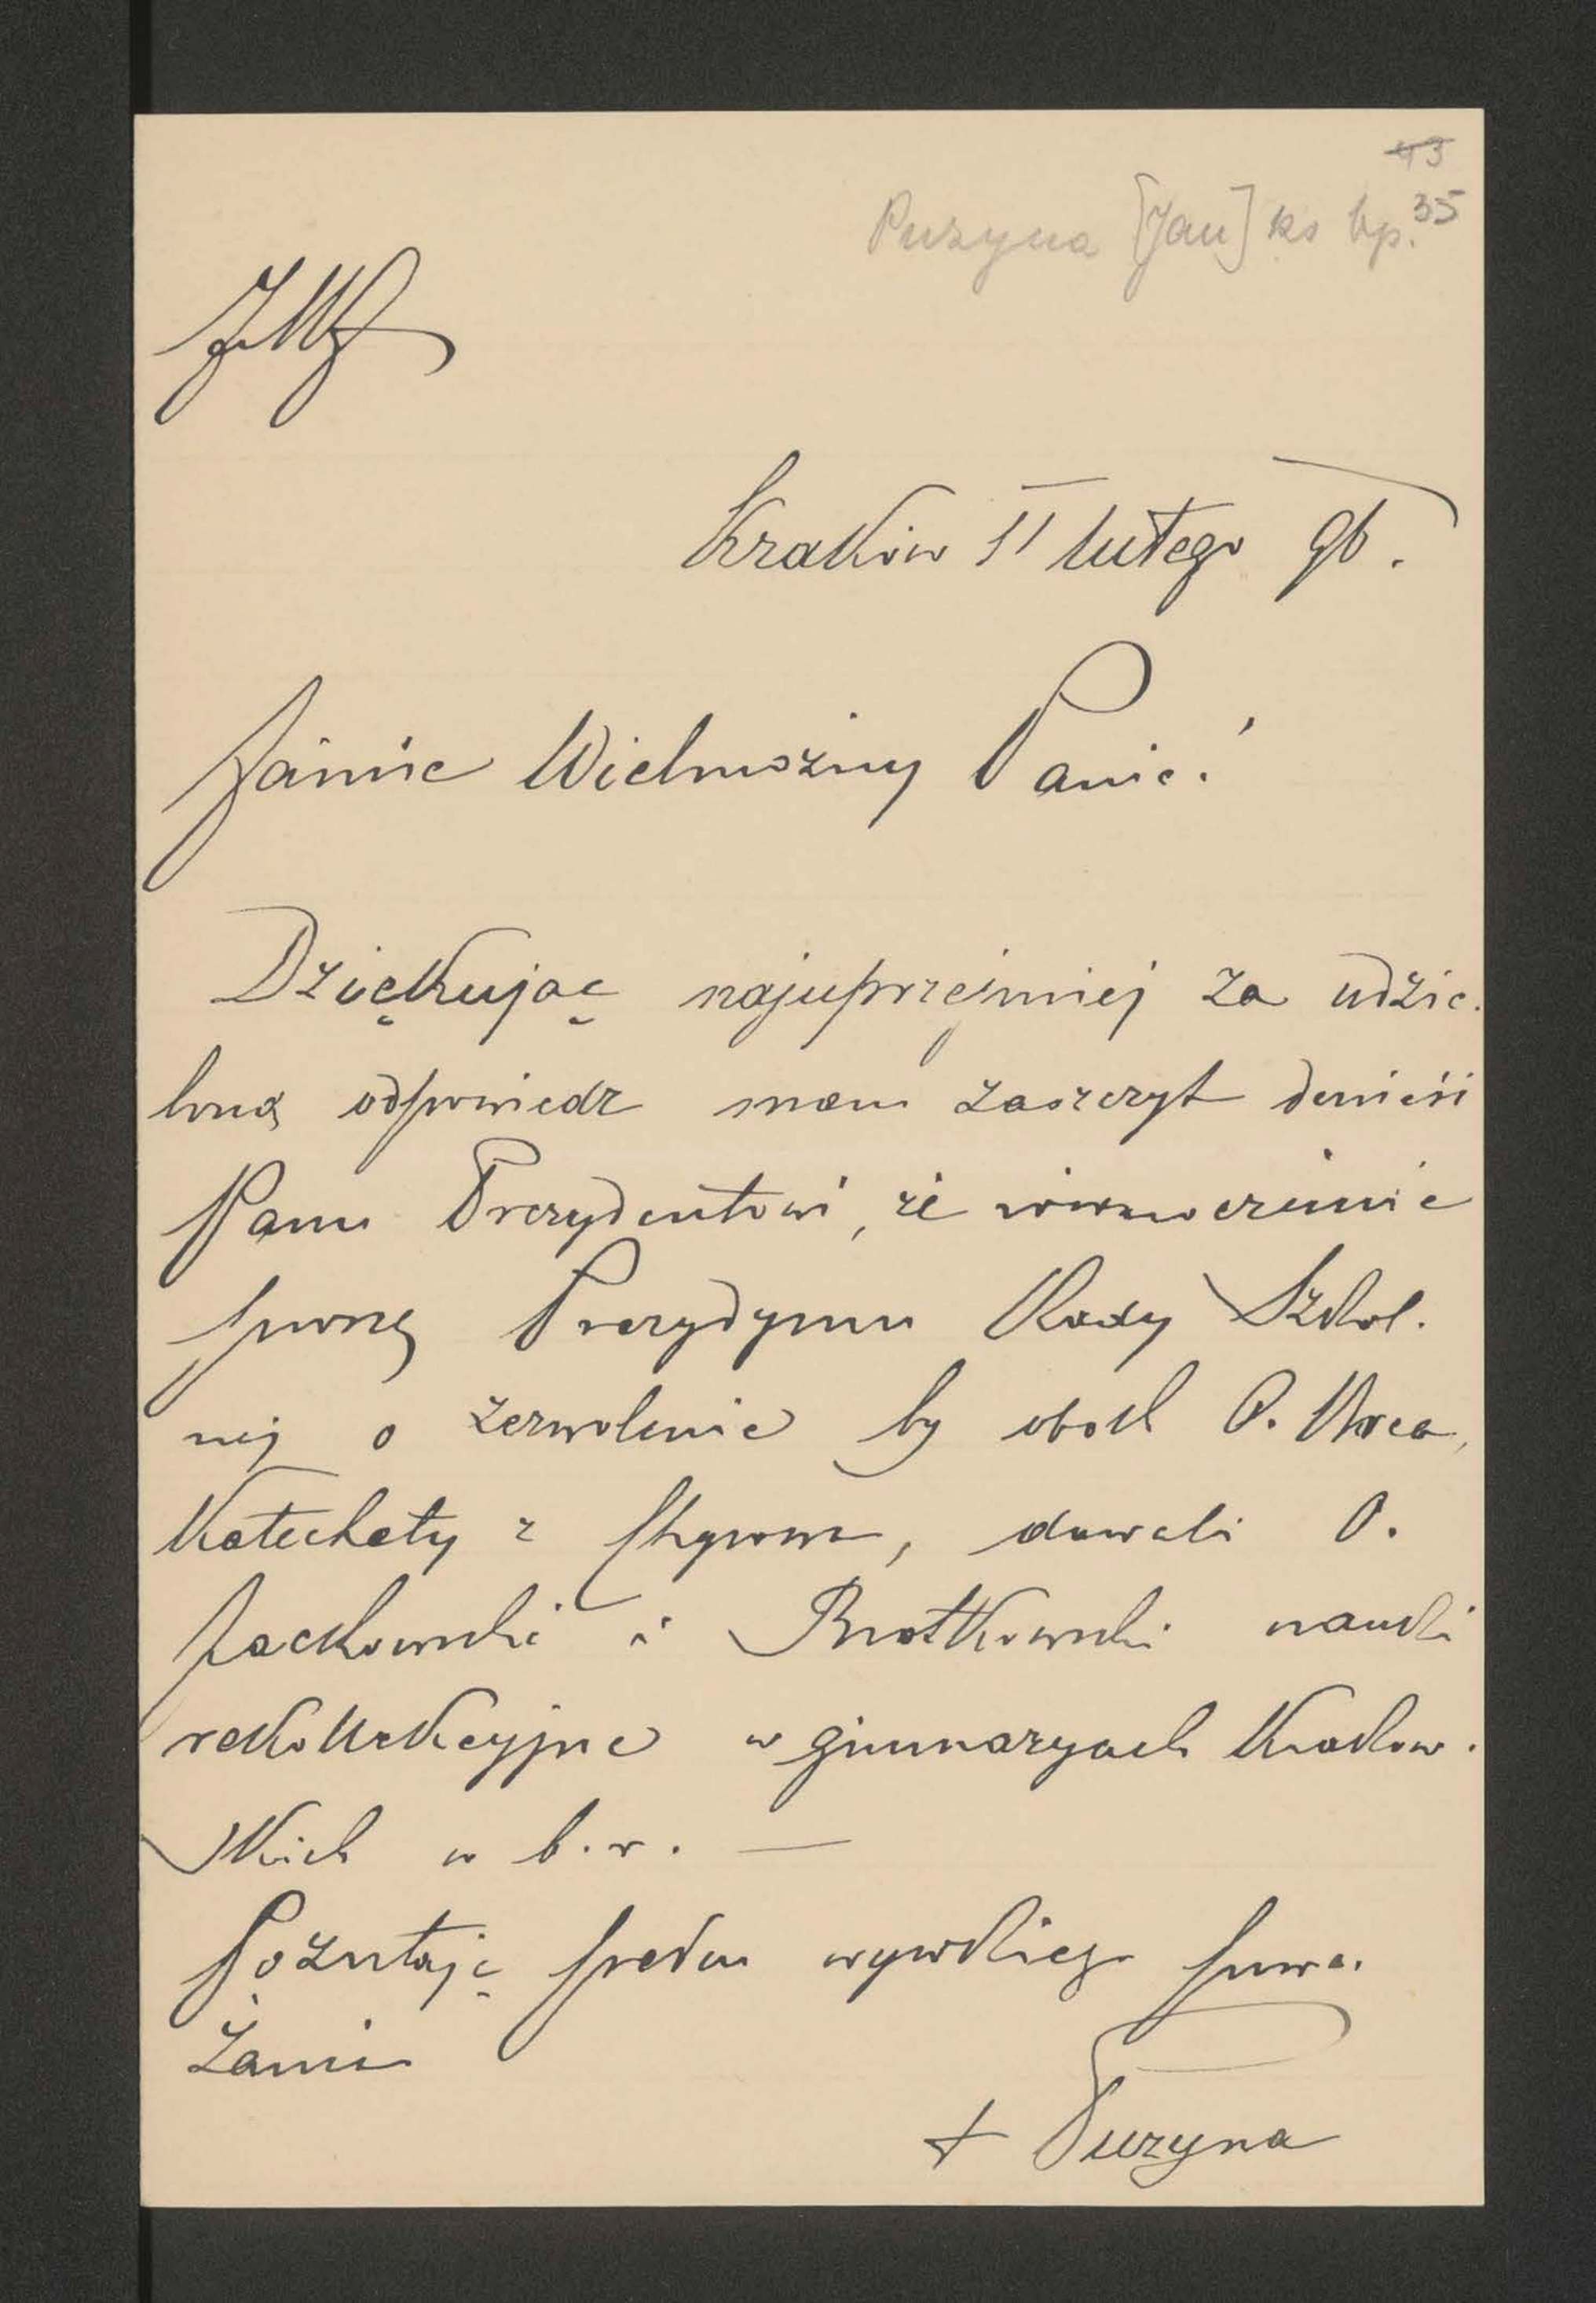 43
35
Puzyna [Jan] ks bp.
JMJ
Kraków 11 lutego 96.
Jaśnie Wielmożny Panie!
Dziękując najuprzejmiej za udzie-
loną odpowiedź mam zaszczyt donieść
Panu Prezydentowi, że równocześnie
proszę Prezydyum Rady Szkol-
nej o zezwolenie by obok O.
Katechety z, dawali O.
Jackowski i Bratkowski nauki
rekollekcyjne w gimnazyach krakow-
skich w b. r. —
Pozostaję pełen wysokiego powa-
żania
+ Puzyna